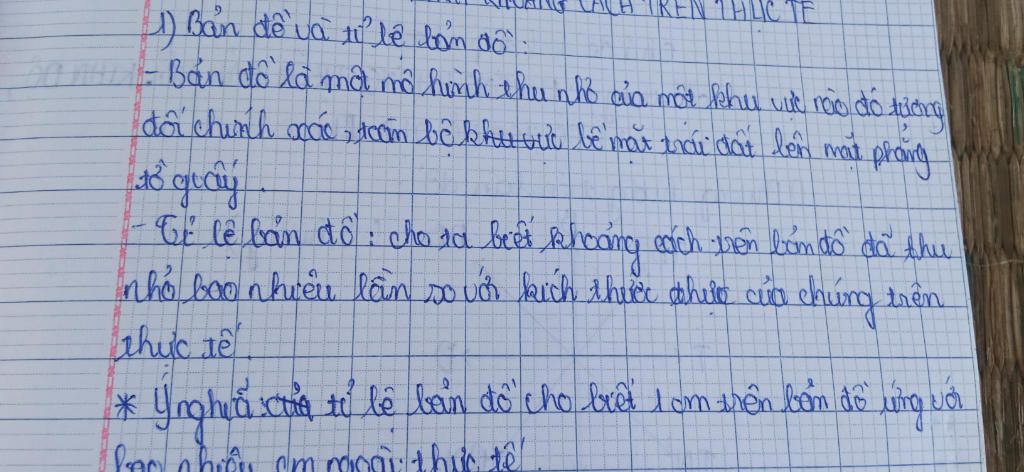 KHOẢNG CÁCH TRÊN THỰC TẾ
1) Bản đồ và tỉ lệ bản đồ:
- Bản đồ là một mô hình thu nhỏ của một khu vực nào đó tương
đối chính xác, toàn bộ khu vực bề mặt trái đất lên mặt phẳng
tờ giấy.
- Tỉ lệ bản đồ: cho ta biết khoảng cách trên bản đồ đã thu
nhỏ bao nhiêu lần so với kích thước thực của chúng trên
thực tế.
* Ý nghĩa của tỉ lệ bản đồ cho biết 1 cm trên bản đồ ứng với
bao nhiêu cm ngoài thực tế.